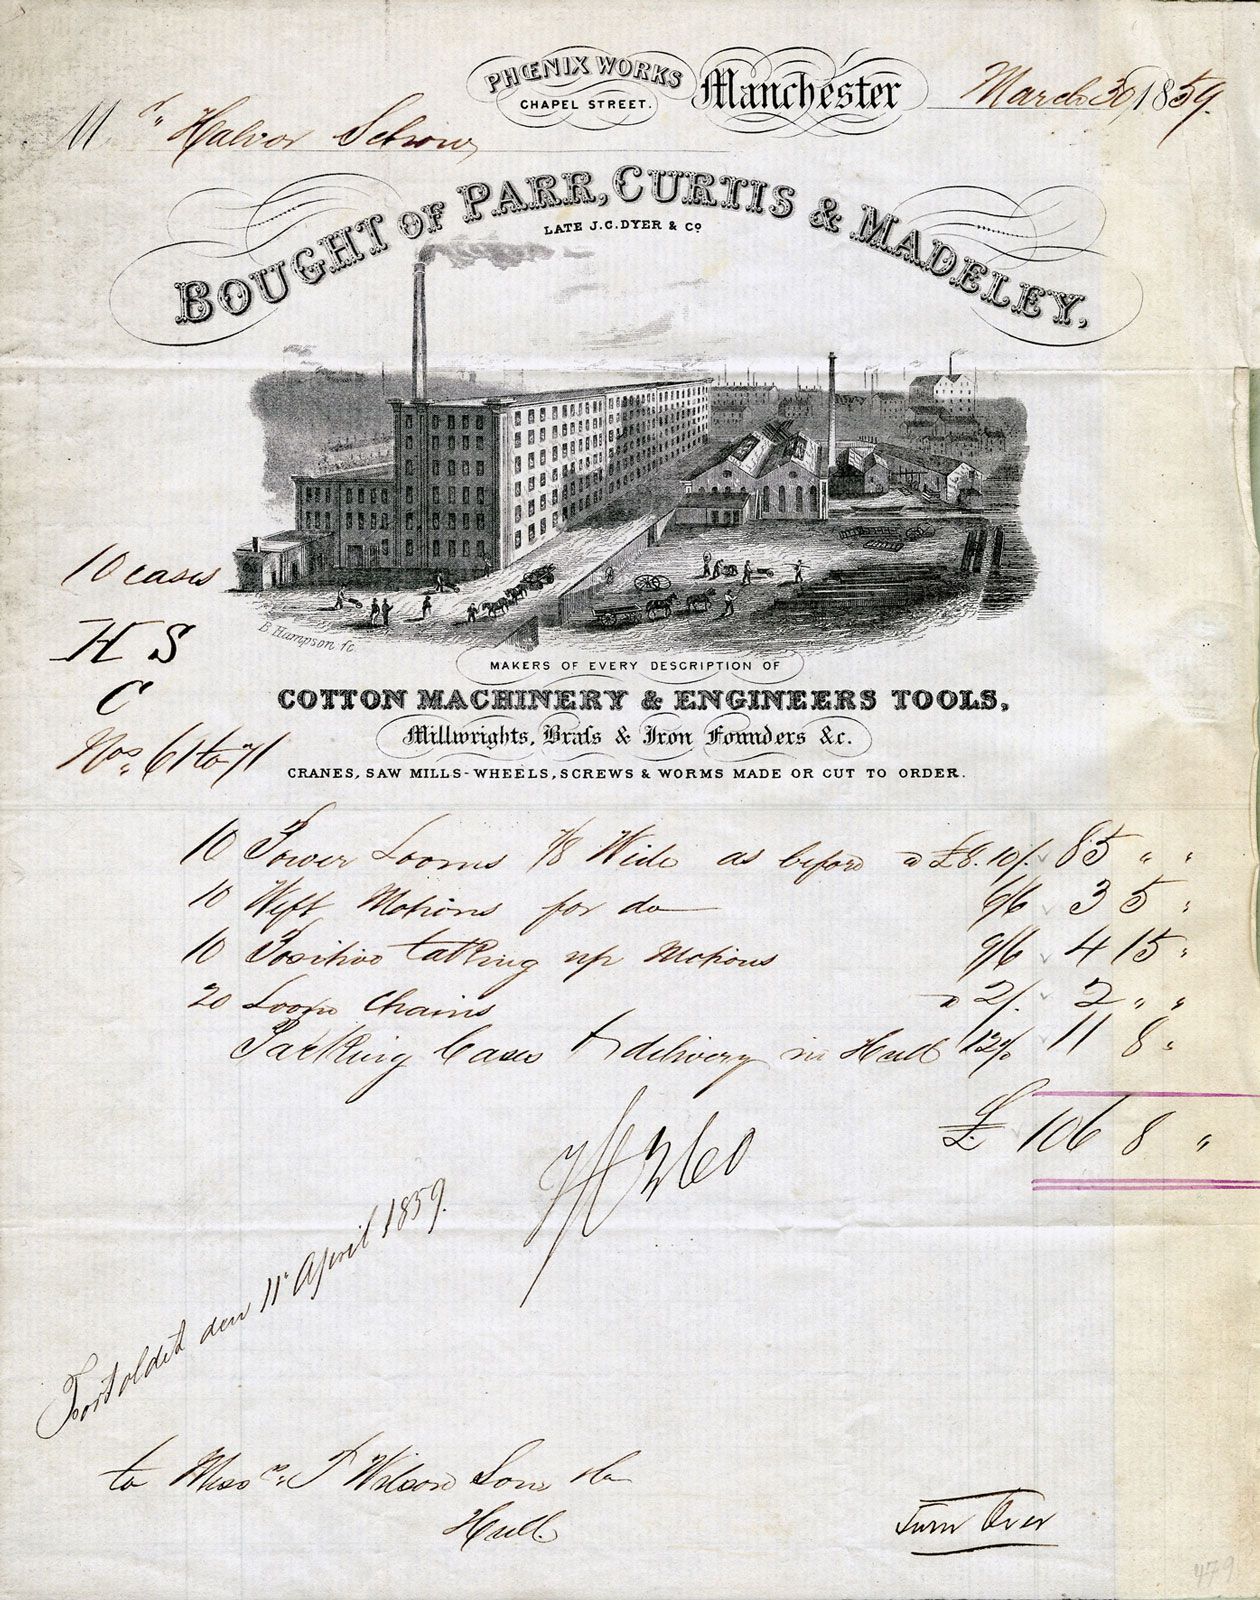 PHŒNIX WORKS
CHAPEL STREET.
Manchester March 30, 1859.
Mr. Halvor Schou,
BOUGHT OF PARR, CURTIS & MADELEY,
LATE J. C. DYER & Co.
B. Hampson sc.
MAKERS OF EVERY DESCRIPTION OF
COTTON MACHINERY & ENGINEERS TOOLS,
Millwrights, Brass & Iron Founders &c.
CRANES, SAW MILLS - WHEELS, SCREWS & WORMS MADE OR CUT TO ORDER.
10 cases
H S
C
Nos. 61 to 71
10 Power Looms 7/8 Wide as before a £8.10/. 85 " "
10 Weft Motions for do 6/6 3 5 "
10 Positive taking up Motions 9/6 4 15 "
20 Loom Chains a 2/. 2 " "
Packing Cases & delivery in Hull 12% 11 8 "
£ 106 8 "
Fortoldet den 11 April 1859.
to Messrs. T Wilson Sons &Co
Hull
Turn Over
479